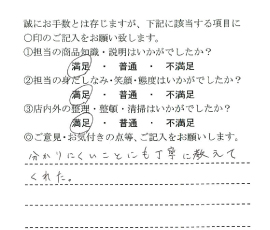 誠にお手数とは存じますが、下記に該当する項目に
〇印のご記入をお願い致します。
①担当の商品知識・説明はいかがでしたか？
満足 ・ 普通 ・ 不満足
②担当の身だしなみ・笑顔・態度はいかがでしたか？
満足 ・ 普通 ・ 不満足
③店内外の整理・整頓・清掃はいかがでしたか？
満足 ・ 普通 ・ 不満足
◎ご意見・お気付きの点等、ご記入をお願します。
分かりにくいことにも丁寧に教えて
くれた。